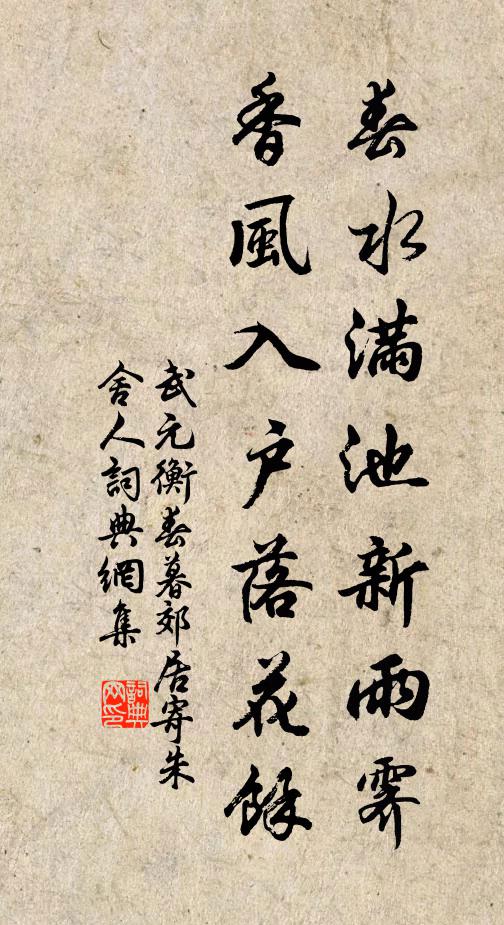 春水滿池新雨霽
香風入戶落花餘
武元衡春暮郊居寄朱
舍人詞典網集
詞典
网印